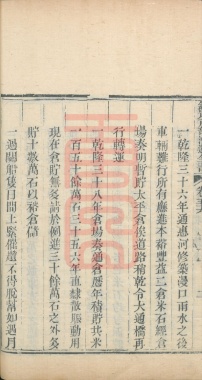 一乾隆三十六年通惠河修築漫口雨水之後
車輛難行所有應進本裕豐益二倉米石經倉
場奏明暫貯太平倉俟道路稍乾令大通橋再
行轉運
一乾隆三十八年倉場奏通倉歷年積貯共米
一百五十餘萬石三十五六年直隷散賑動用
現在倉貯無多請於例進三十餘萬石之外多
貯十數萬石以裕倉儲
一過關船隻日間上緊催趲不得脫幫如遇月